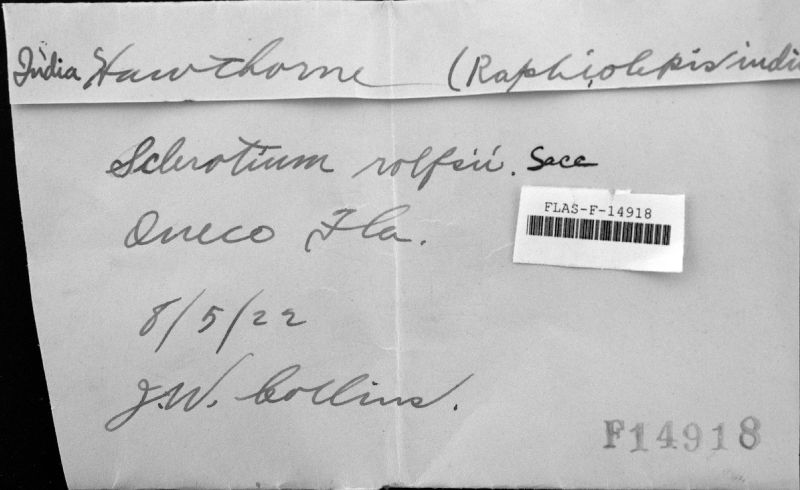 India Hawthorne (Raphiolepis indi
Sclerotium rolfsii. Sacc
FLAS-F-14918
Oneco Fla.
8/5/22
J.W. Collins.
F14918